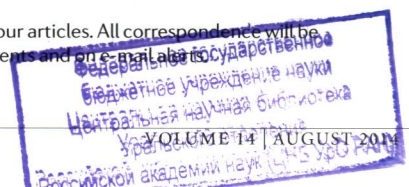 our articles. All correspondence will be
ents and on e-mail alerts.
Федеральное государственное
бюджетное учреждение науки
Центральная научная библиотека
Уральского
VOLUME 14 | AUGUST 2014
Российской академии наук (ЦНБ УрО РАН)